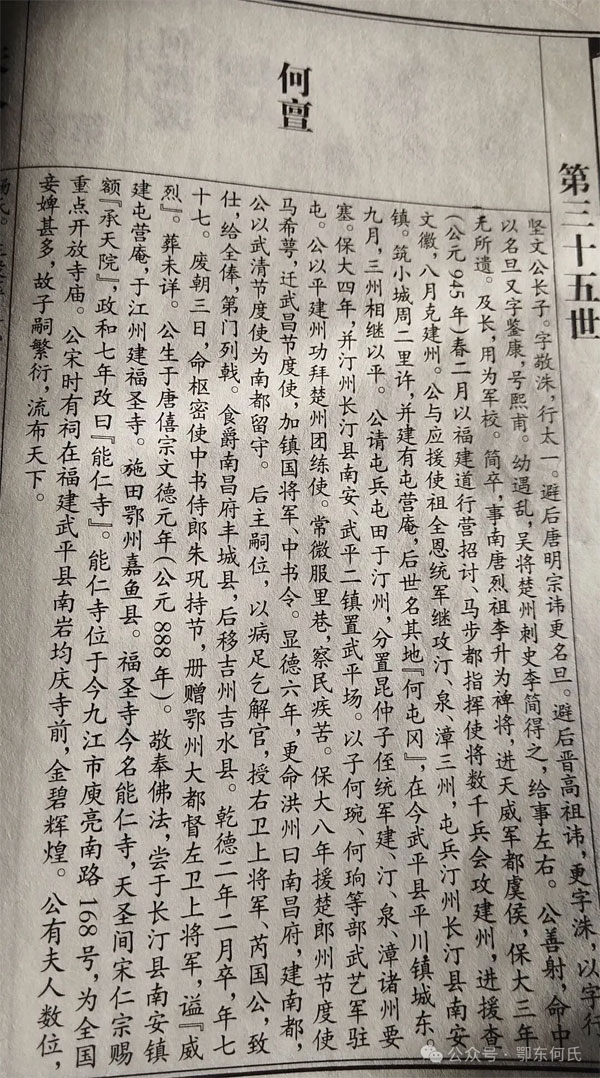 第三十五世
何亶
坚文公长子。字敬洙，行太一。避后唐明宗讳更名旦。避后晋高祖讳，更字洙，以字行
以名旦又字鉴康，号熙甫。幼遇乱，吴将楚州刺史李简得之，给事左右。公善射，命中
无所遗。及长，用为军校。简卒，事南唐烈祖李升为裨将，进天威军都虞侯，保大三年
（公元945年）春二月以福建道行营招讨、马步都指挥使将数千兵会攻建州，进援查
文徽，八月克建州。公与应援使祖全恩统军继攻汀、泉、漳三州，屯兵汀州长汀县南安
镇。筑小城周二里许，并建有屯营庵，后世名其地『何屯冈』，在今武平县平川镇城东。
九月，三州相继以平。公请屯兵屯田于汀州，分置昆仲子侄统军建、汀、泉、漳诸州要
塞。保大四年，并汀州长汀县南安、武平二镇置武平场。以子何琬、何珦等部武艺军驻
屯。公以平建州功拜楚州团练使。常微服里巷，察民疾苦。保大八年援楚郎州节度使
马希萼，迁武昌节度使，加镇国将军、中书令。显德六年，更命洪州曰南昌府，建南都，
公以武清节度使为南都留守。后主嗣位，以病足乞解官，授右卫上将军、芮国公，致
仕，给全俸，第门列戟。食爵南昌府丰城县，后移吉州吉水县。乾德二年二月卒，年七
十七。废朝三日，命枢密使中书侍郎朱巩持节，册赠鄂州大都督左卫上将军，谥『威
烈』。葬未详。公生于唐僖宗文德元年（公元888年）。敬奉佛法，尝于长汀县南安镇
建屯营庵，于江州建福圣寺。施田鄂州嘉鱼县。福圣寺今名能仁寺，天圣间宋仁宗赐
额『承天院』，政和七年改曰『能仁寺』。能仁寺位于今九江市庾亮南路168号，为全国
重点开放寺庙。公宋时有祠在福建武平县南岩均庆寺前，金碧辉煌。公有夫人数位，
妾婢甚多，故子嗣繁衍，流布天下。
公众号·鄂东何氏